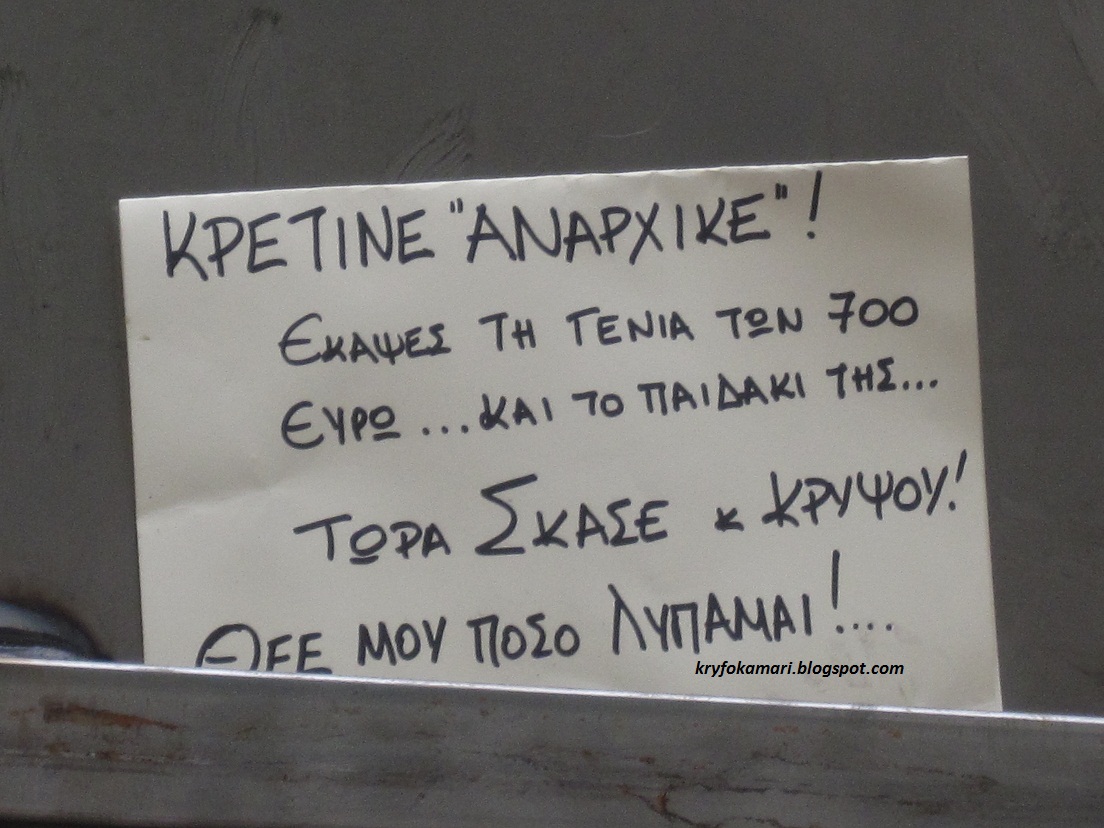 ΚΡΕΤΙΝΕ "ΑΝΑΡΧΙΚΕ"!
ΕΚΑΨΕΣ ΤΗ ΓΕΝΙΑ ΤΩΝ 700
ΕΥΡΩ ...ΚΑΙ ΤΟ ΠΑΙΔΑΚΙ ΤΗΣ...
ΤΩΡΑ ΣΚΑΣΕ κ ΚΡΥΨΟΥ!
ΘΕΕ ΜΟΥ ΠΟΣΟ ΛΥΠΑΜΑΙ!....
kryfokamari.blogspot.com